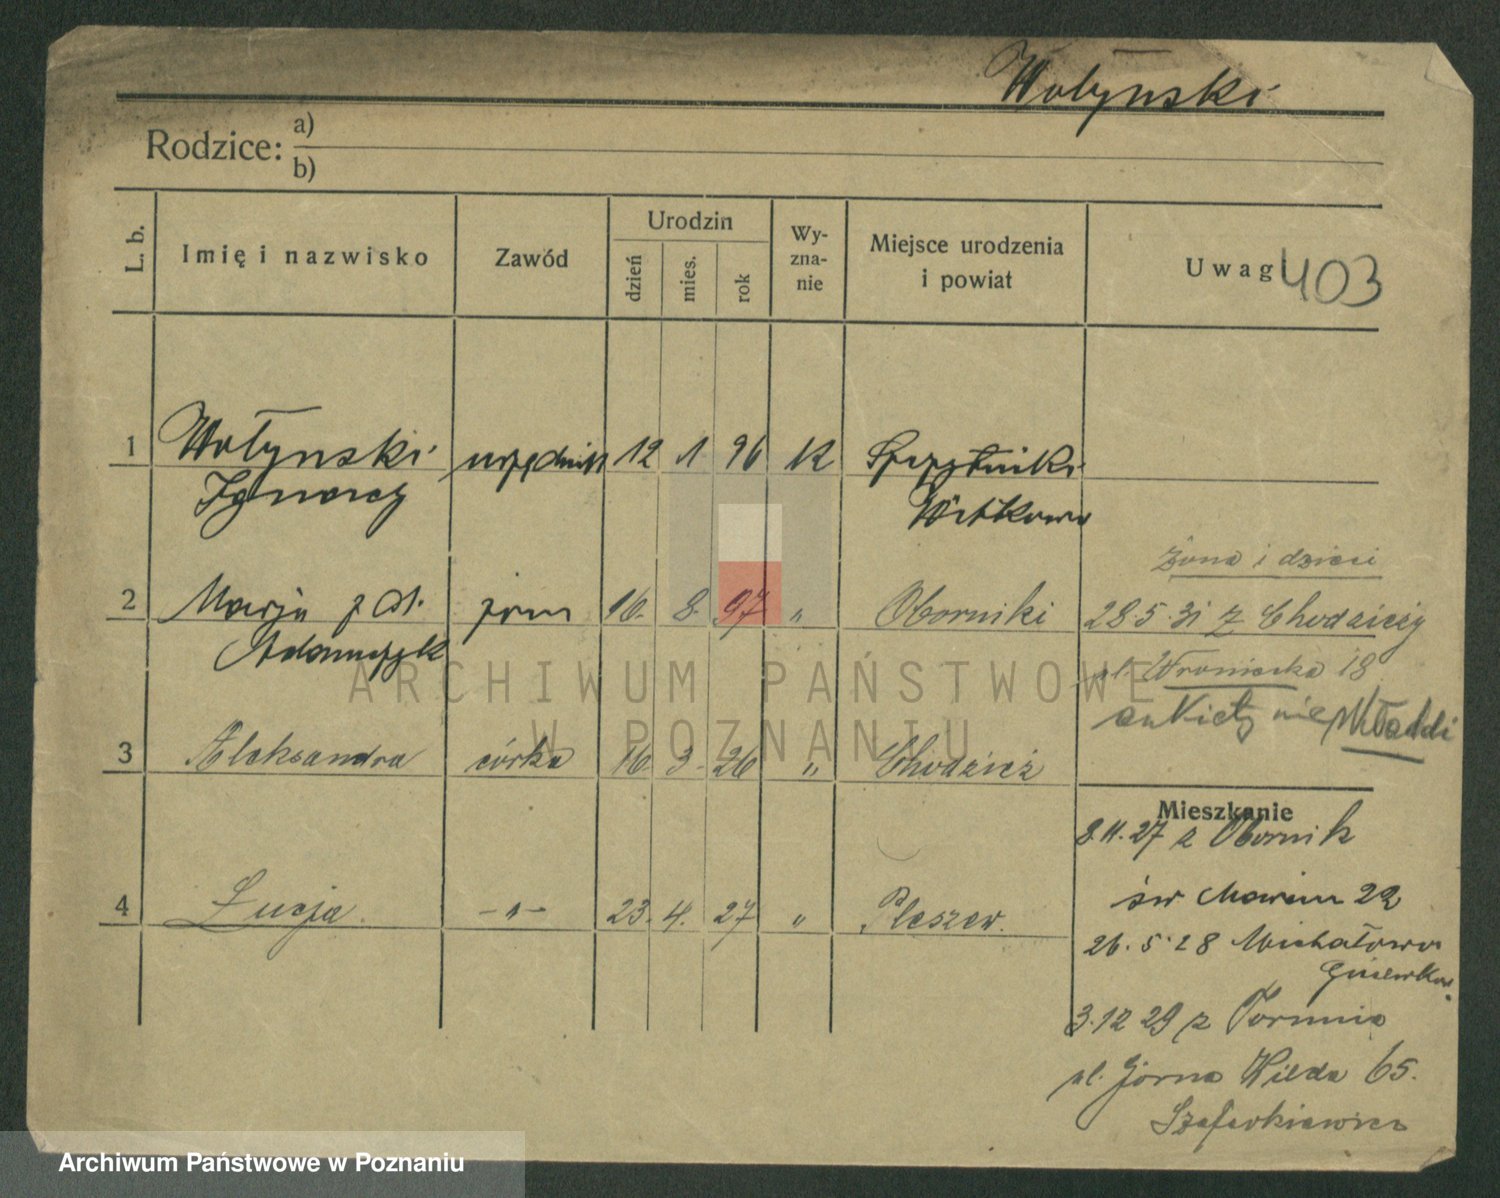 Wołynski
Rodzice: a)
b)
L. b.
Imię i nazwisko
Zawód
Urodzin
dzień
mies.
rok
Wy-
zna-
nie
Miejsce urodzenia
i powiat
Uwag 403
1 Wołynski urzędnik 12 1 96 K
Ignacy Witkowo
żona i dzieci
2 Marja z d. żona 16. 8. 97 " Oborniki 28.5.31 z Chodzieży
Adamczyk
ul. Wroniecka 18
ankiety nie składali
3 Aleksandra córka 16. 3. 26 " Chodzież
Mieszkanie
8.11.27 z Obornik
4 Łucja -"- 23. 4. 27 " Pleszew.
św Marcin 22
26.5.28 Michałowo
3.12 29 z Torunia
ul. Górna Wilda 65.
Szafarkiewicz
ARCHIWUM PAŃSTWOWE
W POZNANIU
Archiwum Państwowe w Poznaniu